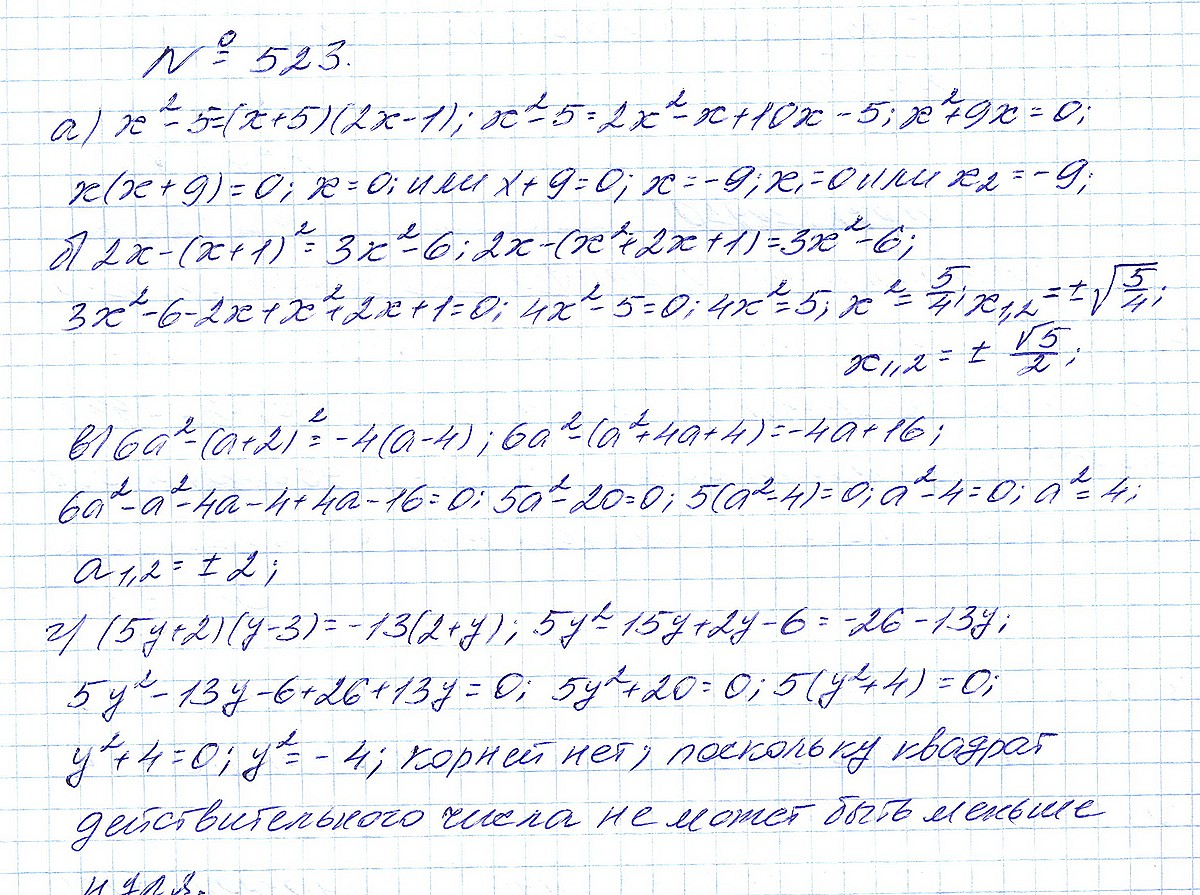 № 523.
а) x²-5=(x+5)(2x-1); x²-5=2x²-x+10x-5; x²+9x=0;
x(x+9)=0; x=0; или x+9=0; x=-9; x₁=0 или x₂=-9;
б) 2x-(x+1)²=3x²-6; 2x-(x²+2x+1)=3x²-6;
3x²-6-2x+x²+2x+1=0; 4x²-5=0; 4x²=5; x²=5/4; x₁,₂=±√5/4;
x₁,₂=±√5/2;
в) 6a²-(a+2)²=-4(a-4); 6a²-(a²+4a+4)=-4a+16;
6a²-a²-4a-4+4a-16=0; 5a²-20=0; 5(a²-4)=0; a²-4=0; a²=4;
a₁,₂=±2;
г) (5y+2)(y-3)=-13(2+y); 5y²-15y+2y-6=-26-13y;
5y²-13y-6+26+13y=0; 5y²+20=0; 5(y²+4)=0;
y²+4=0; y²=-4; корней нет, поскольку квадрат
действительного числа не может быть меньше
нуля.